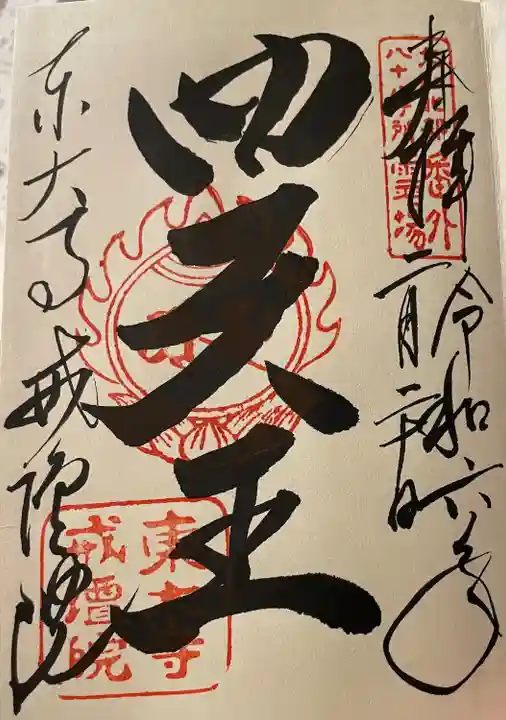 奉拝
八十八ヶ所霊場
令和六年
二月
四天王
東大寺戒壇院
東大寺
戒壇院